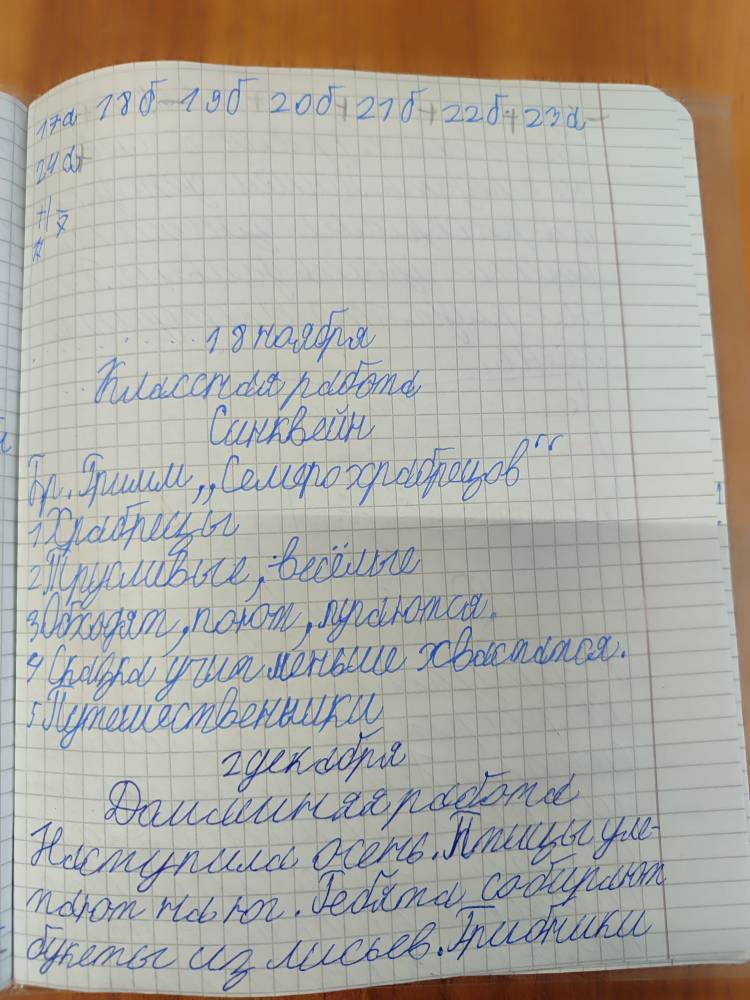 17а 18б-19б 20б+21б+22б+23а-
24а+
18 ноября
Классная работа
Синквейн
Бр. Гримм „Семеро храбрецов"
1 Храбрецы
2 Трусливые, весёлые
3 Обходят, поют, пугаются.
4 Сказка учит меньше хвастатся.
5 Путешественники
2 декабря
Домминяя работа
Наступила осень. Птицы уле-
тают на юг. Ребята собирают
букеты из лисьев. Грибники